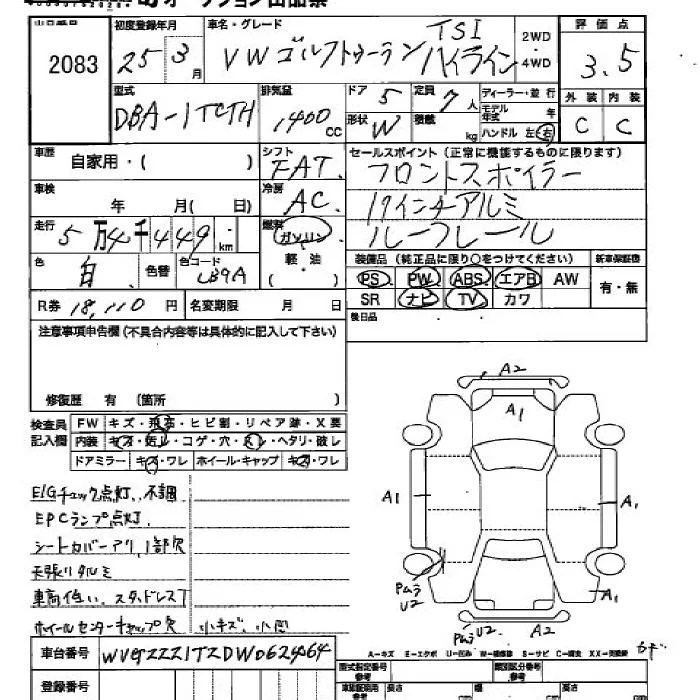 オークション出品票
出品番号 初度登録年月 車名・グレード 評価点
2083 25 3月 VW ゴルフトゥーラン TSI ハイライン 2WD・4WD 3.5
型式 排気量 ドア 5 定員 7人 ディーラー・並行 外装 内装
DBA-1TCTH 1400cc 形状 W 積載 kg モデル年式 年 ハンドル 左 右 C C
車歴 自家用・( ) シフト FAT セールスポイント (正常に機能するものに限ります)
車検 年 月( 日) 冷房 AC フロントスポイラー
17インチアルミ
走行 5万4千449km 燃料 ガソリン 軽油 ( ) ルーフレール
色 白 色替 色コード LB9A 装備品 (純正品に限り○をつけてください) 新車保証書
PS PW ABS エアB AW 有・無
R券 18,110円 名変期限 月 日 SR ナビ TV カワ
後日品
注意事項申告欄(不具合内容等は具体的に記入して下さい)
修復歴 有 (箇所 )
検査員記入欄 FW キズ・飛石・ヒビ割・リペア跡・X要
内装 キズ・汚レ・コゲ・穴・スレ・ヘタリ・破レ
ドアミラー キズ・ワレ ホイール・キャップ キズ・ワレ
E/Gチェック点灯、不調
EPCランプ点灯
シートカバーアリ、1部欠
天張リタルミ
車高低い、スタッドレス
ホイールセンターキャップ欠 小キズ、小凹
A2
A1
A1
A1
PムラU2
A1
PムラU2 A2
A-キズ E-エクボ U-凹み W-補修跡 S-サビ C-腐食 XX-交換済
車台番号 WVGZZZ1TZDW062464
型式指定番号 参考 類別区分番号 参考
登録番号 長さ 幅 高さ